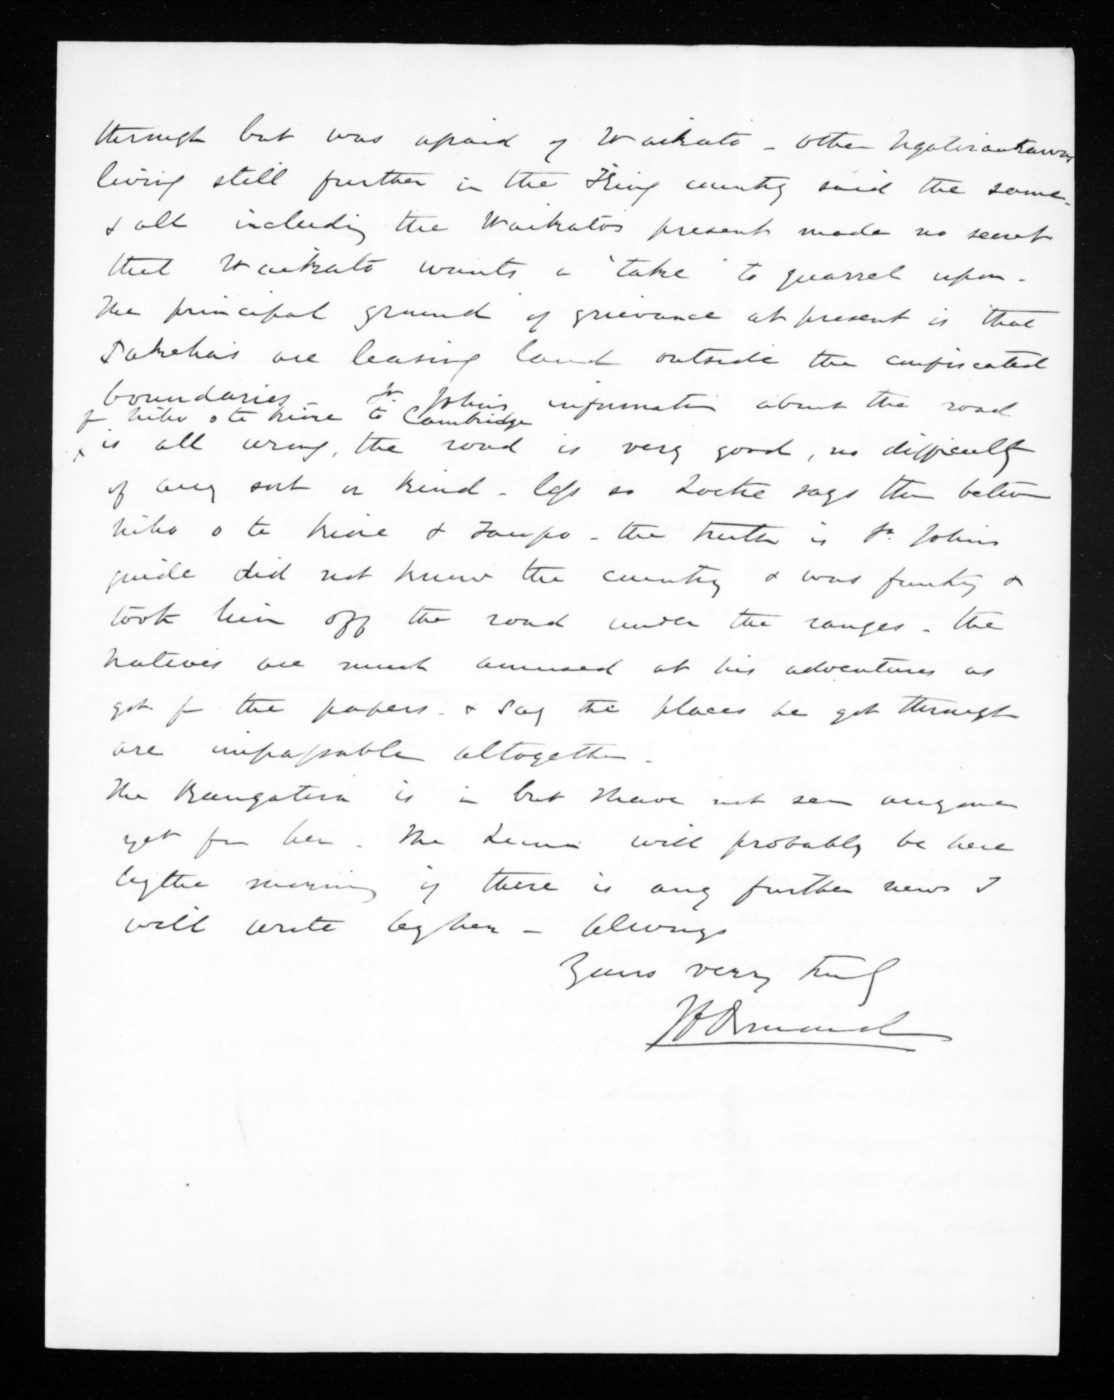 through but was afraid of Waikato - other Ngatiraukawa
living still further in the King country said the same -
& all including the Waikatos present made no secret
that Waikato wants a 'take' to quarrel upon -
The principal ground of grievance at present is that
Pakehas are leasing land outside the confiscated
boundaries - St. Johns information about the road
x fr Niho o te Kiore to Cambridge
is all wrong, the road is very good, no difficulty
of any sort or kind - less so Locke says than between
Niho o te Kiore & Taupo - the truth is St. Johns
guide did not know the country & was funky &
took him off the road under the ranges - the
Natives are much amused at his adventures as
got fr the papers - & say the places he got through
are impassable altogether -
The Rangatira is in but I have not seen anyone
yet from her. The Luna will probably be here
by the morning if there is any further news I
will write by her - Always
Yours very truly
JDOrmond